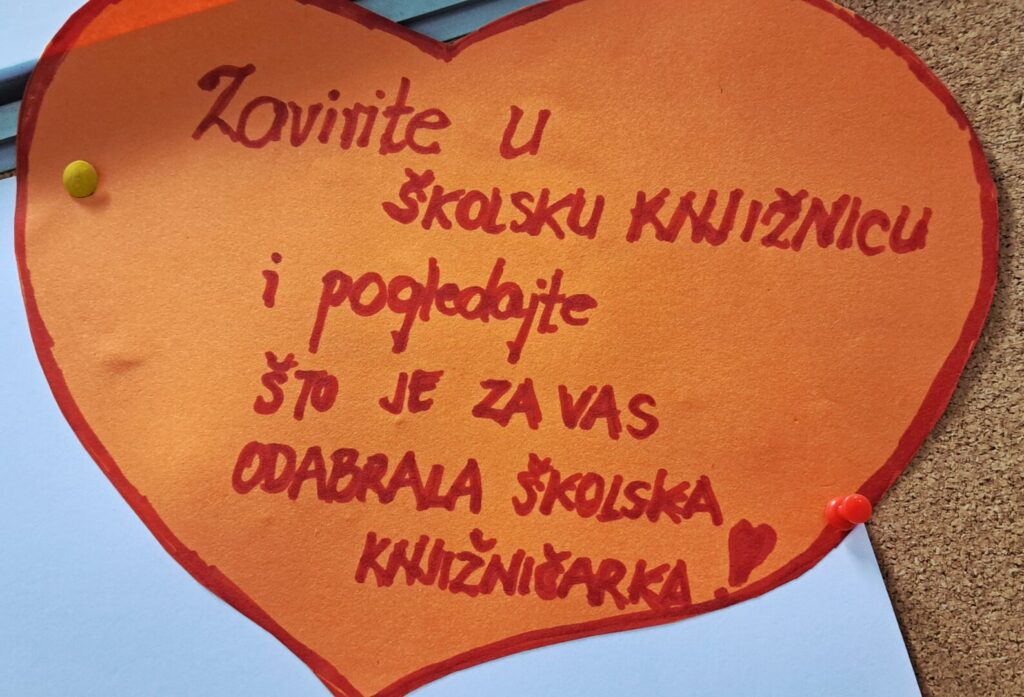 Zavirite u
ŠKOLSKU KNJIŽNICU
i pogledajte
ŠTO JE ZA VAS
ODABRALA ŠKOLSKA
KNJIŽNIČARKA!